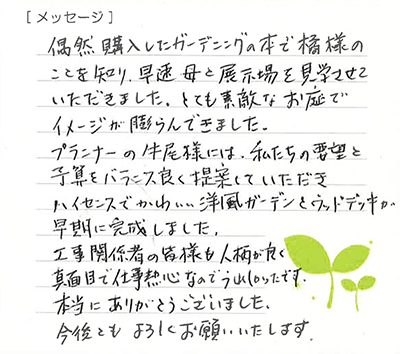 [ メッセージ ]
偶然購入したガーデニングの本で橘様の
ことを知り、早速 母と展示場を見学させて
いただきました。とても素敵な お庭で
イメージが膨らんできました。
プランナーの牛尾様には、私たちの要望と
予算をバランス良く提案していただき
ハイセンスでかわいい洋風ガーデンとウッドデッキが
早期に完成しました。
工事関係者の皆様も人柄が良く
真面目で仕事熱心なのでうれしかったです。
本当に ありがとうございました。
今後とも よろしくお願いいたします。